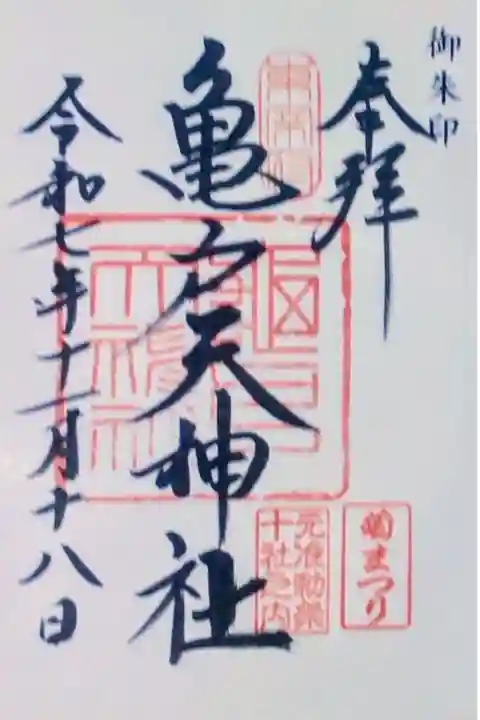 御朱印
奉拝
亀戸天神社
令和七年十一月十八日
菊まつり
元准勅祭
十社之内